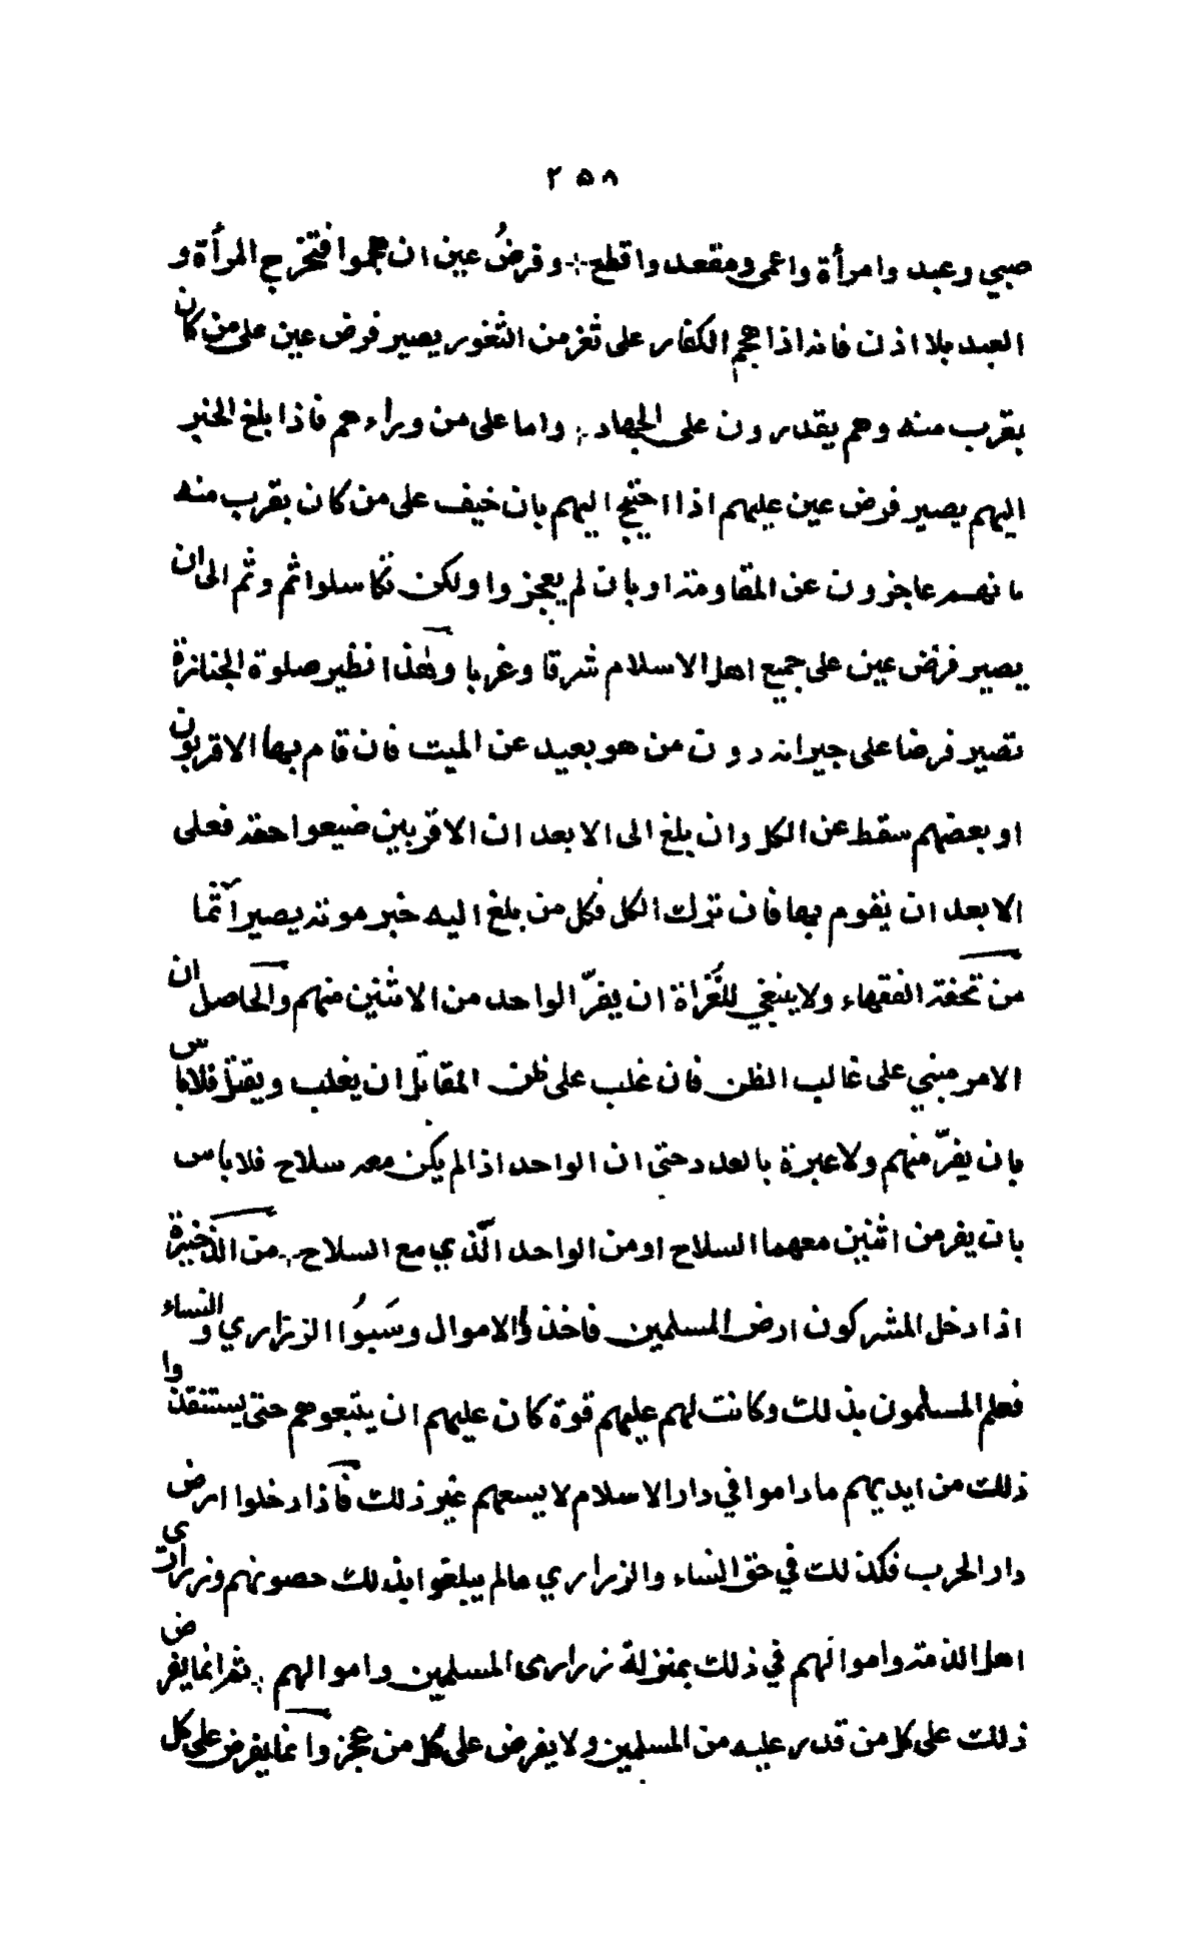 ٢٥٨
صبي وعبد وامرأة واعمى ومقعد واقطع وفرضُ عين ان هجموا فتخرج المرأة و
العبد بلا اذن فانه اذا هجم الكفار على ثغر من الثغور يصير فرض عين على من كان
بقرب منه وهم يقدرون على الجهاد واما على من وراءهم فاذا بلغ الخبر
اليهم يصير فرض عين عليهم اذا احتيج اليهم بان خيف على من كان بقرب منه
ما نهم عاجزون عن المقاومة او بان لم يعجزوا ولكن تكاسلوا ثم وثم الى ان
يصير فرض عين على جميع اهل الاسلام شرقا وغربا وهذا نظير صلوة الجنازة
تصير فرضا على جيرانه دون من هو بعيد عن الميت فان قام بها الاقربون
او بعضهم سقط عن الكل وان بلغ الى الابعد ان الاقربين ضيعوا حقه فعلى
الابعد ان يقوم بها فان ترك الكل فكل من بلغ اليه خبر موته يصير آثما
من تحفة الفقهاء ولا ينبغي للغُزاة ان يفرّ الواحد من الاثنين منهم والحاصل ان
الامر مبني على غالب الظن فان غلب على ظن المقاتل ان يغلب ويقتل فلا باس
بان يفرّ منهم ولا عبرة بالعدد حتى ان الواحد اذا لم يكن معه سلاح فلا باس
بان يفر من اثنين معهما السلاح او من الواحد الّذي مع السلاح من الذخيرة
اذا دخل المشركون ارض المسلمين فاخذوا الاموال وسَبوُا الزراري والنساء
فعلم المسلمون بذلك وكانت لهم عليهم قوة كان عليهم ان يتبعوهم حتى يستنقذوا
ذلك من ايديهم ما داموا في دار الاسلام لا يسعهم غير ذلك فاذا دخلوا ارض
دار الحرب فكذلك في حق النساء والزراري مالم يبلغوا بذلك حصونهم وزراري
اهل الذمة واموالهم في ذلك بمنزلة زراري المسلمين واموالهم ثم انما يفرض
ذلك على كل من قدر عليه من المسلمين ولا يفرض على كل من عجز وانما يفرض على كل